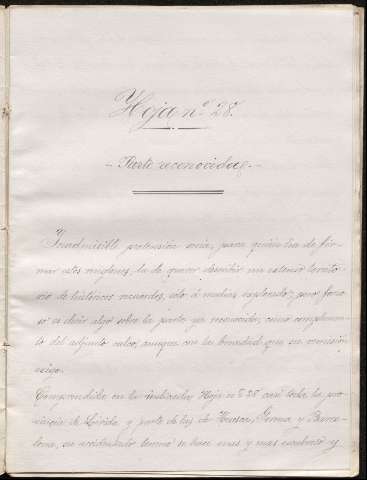 Hoja nº 28.
- Parte reconocida. -
Inadmisible pretensión sería, para quien ha de fir-
mar estos renglones, la de querer describir un extenso territo-
rio de históricos recuerdos, sólo á medias explorado; pero forzo-
so es decir algo sobre la parte ya reconocida, como complemen-
to del adjunto calco, aunque con la brevedad que su comisión
exige.
Comprendida en la indicada Hoja nº 28 casi toda la pro-
vincia de Lérida y parte de las de Huesca, Gerona y Barce-
lona, su accidentado terreno se hace mas y mas escabroso y